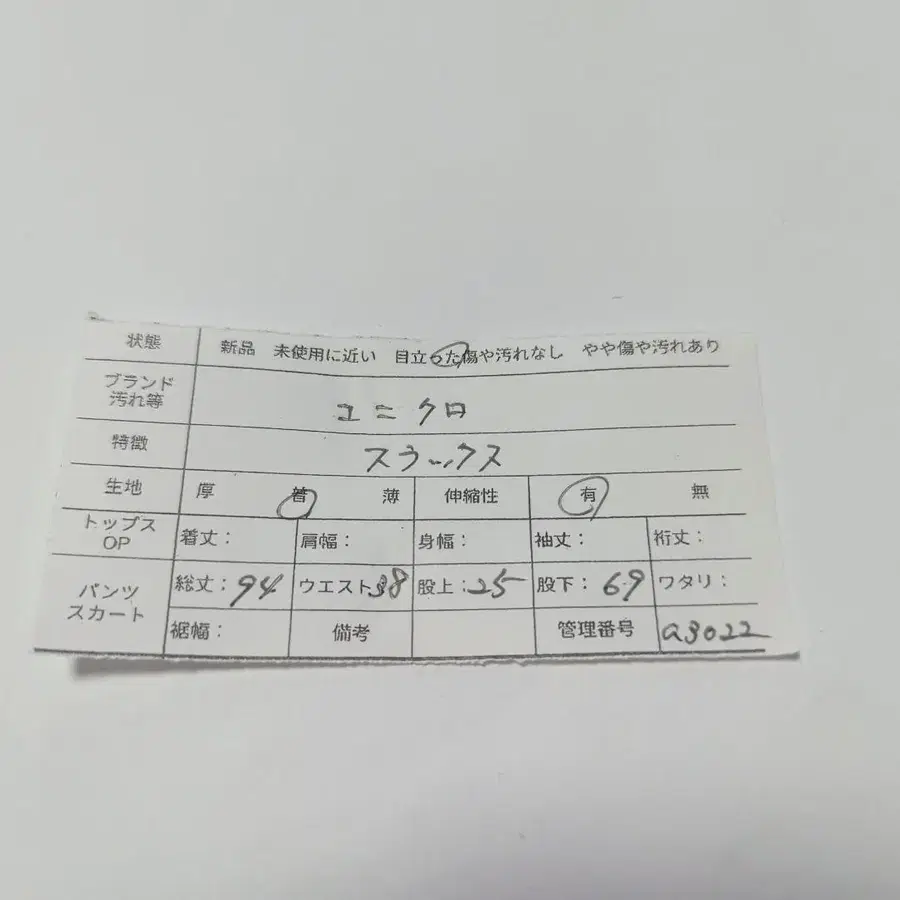 状態 新品 未使用に近い 目立った傷や汚れなし やや傷や汚れあり
ブランド
汚れ等 ユニクロ
特徴 スラックス
生地 厚 普 薄 伸縮性 有 無
トップス
OP 着丈: 肩幅: 身幅: 袖丈: 裄丈:
パンツ
スカート 総丈:94 ウエスト38 股上:25 股下:69 ワタリ:
裾幅: 備考 管理番号 a3022